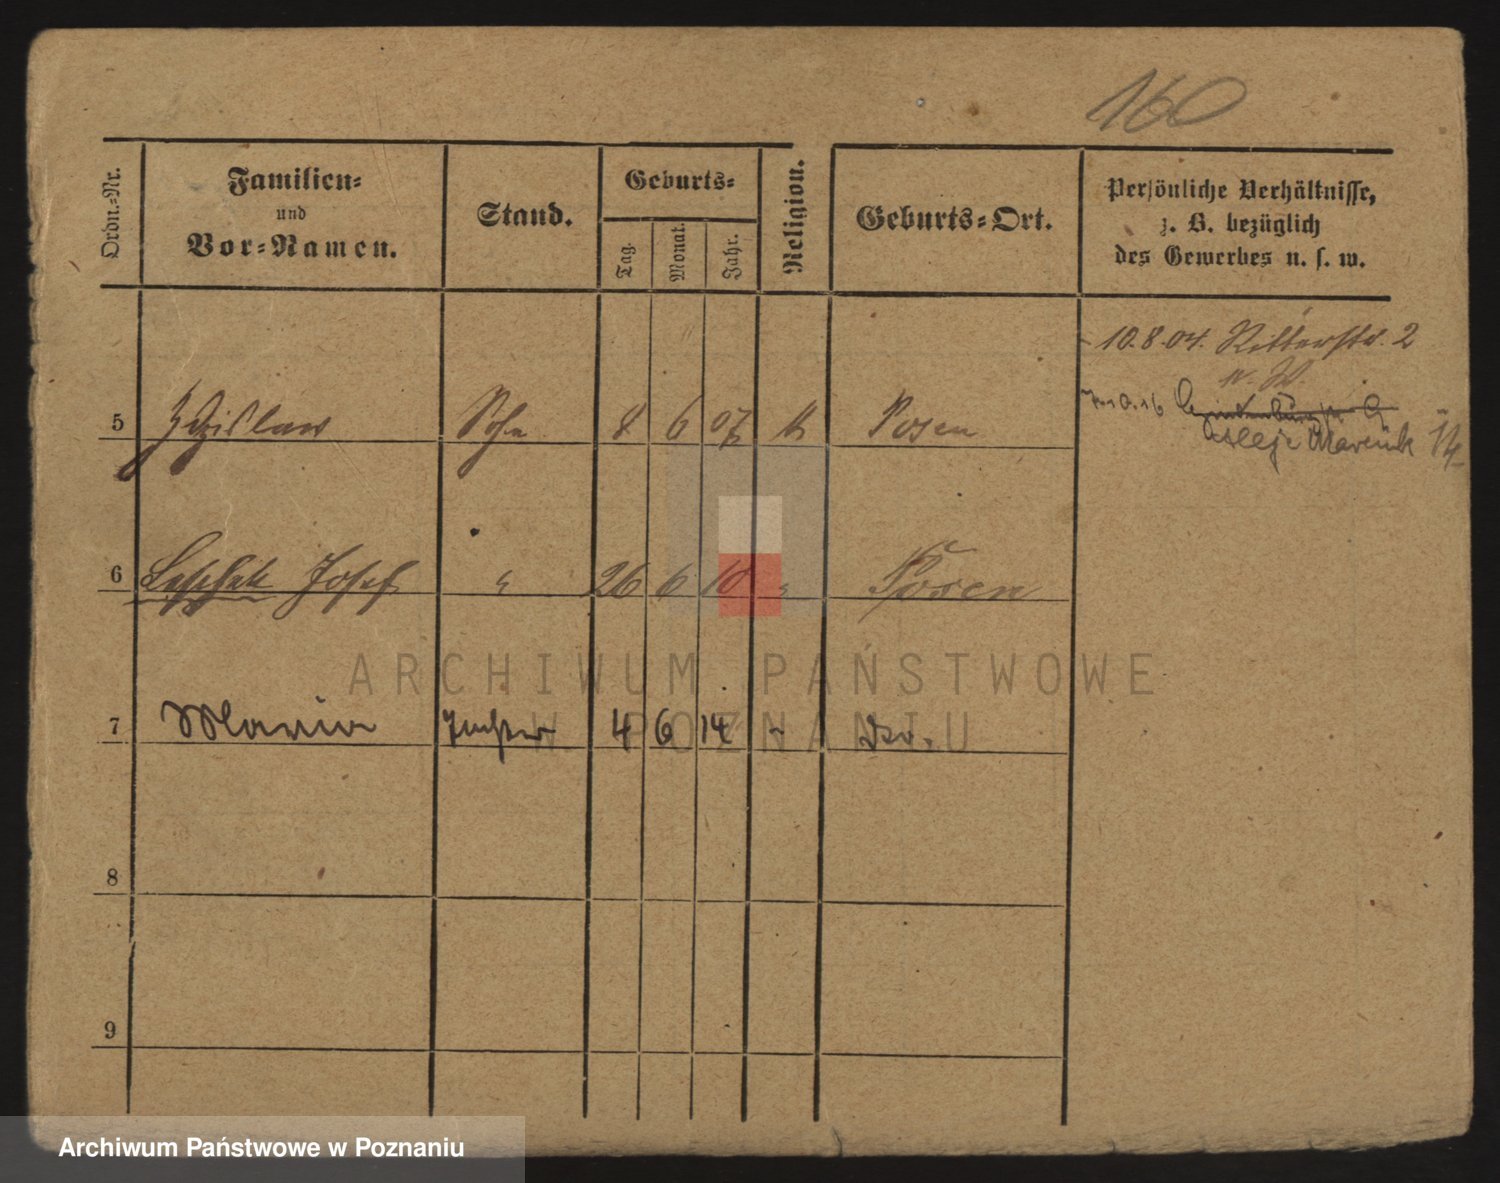 160
Ordn.-Nr.
Familien-
und
Vor-Namen.
Stand.
Geburts-
Tag.
Monat.
Jahr.
Religion.
Geburts-Ort.
Persönliche Verhältnisse,
z. B. bezüglich
des Gewerbes u. s. w.
10.8.04. Ritterstr. 2
5 Zdzislaw Sohn 8 6 07 k Posen
14
6 Leschek Josef " 26 6 10 " Posen
7 Maria Tochter 4 6 14 " Do.
8
9
ARCHIWUM PAŃSTWOWE
W POZNANIU
Archiwum Państwowe w Poznaniu